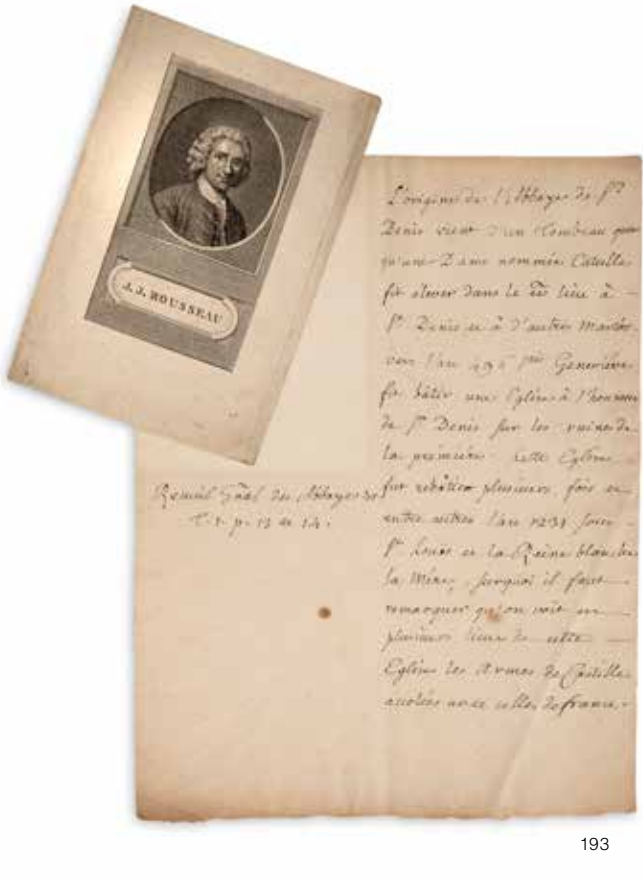 J. J. ROUSSEAU
L'origine de l'Abbaye de St
Denis vient d'un Tombeau
qu'une Dame nommée Catulle
fit élever dans le lieu à
St Denis et à d'autres Martirs
vers l'an Geneviève
fit bâtir une Eglise à l'honneur
de St Denis sur les ruines de
la première cette Eglise
fut rebâtie plusieurs fois et
entre autres l'an 1231 sous
St Louis et la Reine blanche
la Mère, surquoi il faut
remarquer qu'on voit en
plusieurs lieux de cette
Eglise les Armes de Castille
accolées avec celles de france.
Recueil Gñal des Abbayes de
T. 1. p. 13 et 14.
193